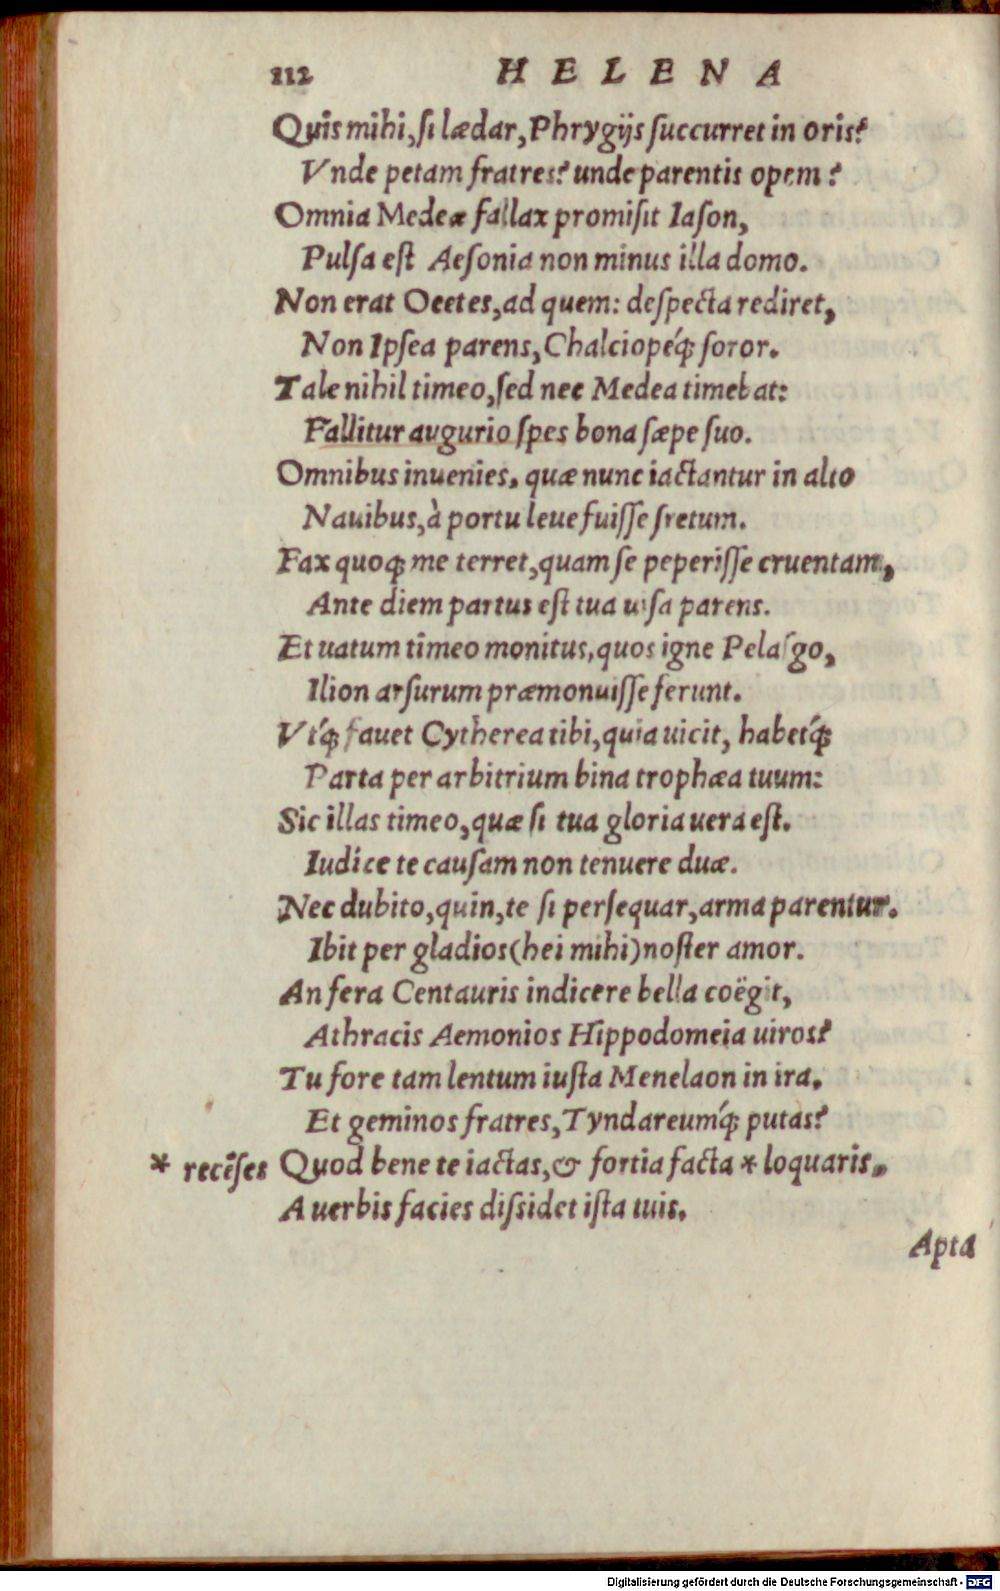 112 HELENA
Quis mihi, ſi lædar, Phrygijs ſuccurret in oris?
Vnde petam fratres? unde parentis opem?
Omnia Medeæ fallax promiſit Iaſon,
Pulſa eſt Aeſonia non minus illa domo.
Non erat Oeetes, ad quem: deſpecta rediret,
Non Ipſea parens, Chalciopéq; ſoror.
Tale nihil timeo, ſed nec Medea timebat:
Fallitur augurio ſpes bona ſæpe ſuo.
Omnibus inuenies, quæ nunc iactantur in alto
Nauibus, à portu leue fuiſſe fretum.
Fax quoq; me terret, quam ſe peperiſſe cruentam,
Ante diem partus eſt tua uiſa parens.
Et uatum timeo monitus, quos igne Pelaſgo,
Ilion arſurum præmonuiſſe ferunt.
Vtq́; fauet Cytherea tibi, quia uicit, habetq́;
Parta per arbitrium bina trophæa tuum:
Sic illas timeo, quæ ſi tua gloria uera eſt.
Iudice te cauſam non tenuere duæ.
Nec dubito, quin, te ſi perſequar, arma parentur.
Ibit per gladios (hei mihi) noſter amor.
An fera Centauris indicere bella coëgit,
Athracis Aemonios Hippodomeia uiros?
Tu fore tam lentum iuſta Menelaon in ira,
Et geminos fratres, Tyndareumq́; putas?
* recẽſes Quod bene te iactas, & fortia facta * loquaris,
A uerbis facies diſsidet iſta tuis.
Apta
Digitalisierung gefördert durch die Deutsche Forschungsgemeinschaft - DFG